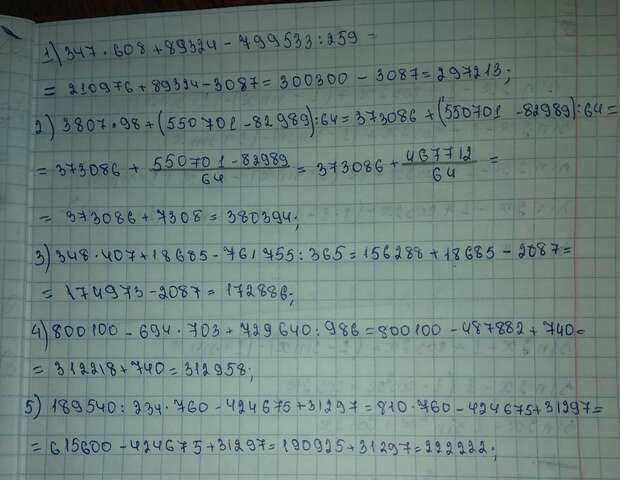 1) 347 · 608 + 89324 - 799533 : 259 =
= 210976 + 89324 - 3087 = 300300 - 3087 = 297213;
2) 3807 · 98 + (550701 - 82989) : 64 = 373086 + (550701 - 82989) : 64 =
= 373086 + \frac{550701 - 82989}{64} = 373086 + \frac{467712}{64} =
= 373086 + 7308 = 380394;
3) 348 · 407 + 18685 - 761755 : 365 = 156288 + 18685 - 2087 =
= 174973 - 2087 = 172886;
4) 800100 - 694 · 703 + 729640 : 986 = 800100 - 487882 + 740 =
= 312218 + 740 = 312958;
5) 189540 : 234 · 760 - 424675 + 31297 = 810 · 760 - 424675 + 31297 =
= 615600 - 424675 + 31297 = 190925 + 31297 = 222222;